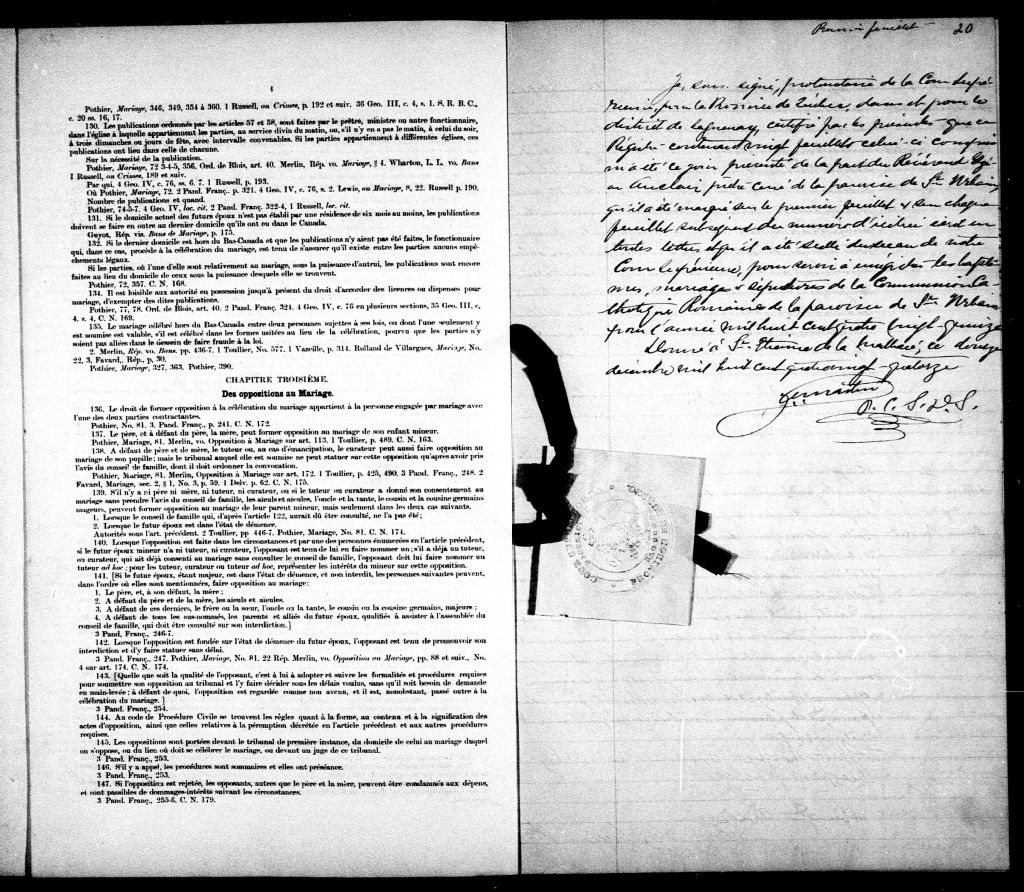 4
Pothier, Mariage, 346, 349, 354 à 360. 1 Russell, on Crimes, p. 192 et suiv. 36 Geo. III, c. 4, s. 1. S. R. B. C.,
c. 20 ss. 16, 17.
130. Les publications ordonnées par les articles 57 et 58, sont faites par le prêtre, ministre ou autre fonctionnaire,
dans l'église à laquelle appartiennent les parties, au service divin du matin, ou, s'il n'y en a pas le matin, à celui du soir,
à trois dimanches ou jours de fête, avec intervalle convenables. Si les parties appartiennent à différentes églises, ces
publications ont lieu dans celle de chacune.
Sur la nécessité de la publication.
Pothier, Mariage, 72 3-4-5, 356, Ord. de Blois, art. 40. Merlin, Rép. vo. Mariage, § 4. Wharton, L. L. vo. Bans
1 Russell, on Crimes, 189 et suiv.
Par qui, 4 Geo. IV, c. 76, ss. 6, 7. 1 Russell, p. 193.
Où Pothier, Mariage, 72. 2 Pand. Franç. p. 321. 4 Geo. IV, c. 76, s. 2. Lewis, on Mariage, 8, 22. Russell p. 190.
Nombre de publications et quand.
Pothier, 74-5-7. 4 Geo. IV, loc. cit. 2 Pand. Franç. 322-4, 1 Russell, loc. cit.
131. Si le domicile actuel des futurs époux n'est pas établi par une résidence de six mois au moins, les publications
doivent se faire en outre au dernier domicile qu'ils ont eu dans le Canada.
Guyot, Rép. vis. Bans de Mariage, p. 175.
132. Si le dernier domicile est hors du Bas-Canada et que les publications n'y aient pas été faites, le fonctionnaire
qui, dans ce cas, procède à la célébration du mariage, est tenu de s'assurer qu'il existe entre les parties aucuns empê-
chements légaux.
Si les parties, où l'une d'elle sont relativement au mariage, sous la puissance d'autrui, les publications sont encore
faites au lieu du domicile de ceux sous la puissance desquels elle se trouvent.
Pothier, 72, 357. C. N. 168.
134. Il est loisible aux autorité en possession jusqu'à présent du droit d'accorder des licences ou dispenses pour
mariage, d'exempter des dites publications.
Pothier, 77, 78. Ord. de Blois, art. 40. 2 Pand. Franç. 324. 4 Geo. IV, c. 76 en plusieurs sections, 35 Geo. III, c.
4. s. 4, C. N. 169.
135. Le mariage célébré hors du Bas-Canada entre deux personnes sujettes à ses lois, ou dont l'une seulement y
est soumise est valable, s'il est célébré dans les formes usitées au lieu de la célébration, pourvu que les parties n'y
soient pas allées dans le dessein de faire fraude à la loi.
2. Merlin, Rép. vo. Bans, pp. 436-7. 1 Toullier, No. 577. 1 Vazeille, p. 314. Rolland de Villargues, Mariage, No.
22, 3, Favard., Rép., p. 30.
Pothier, Mariage, 327, 363. Pothier, 390.
CHAPITRE TROISIÈME.
Des oppositions au Mariage.
136. Le droit de former opposition à la célébration du mariage appartient à la personne engagée par mariage avec
l'une des deux parties contractantes.
Pothier, No. 81. 3, Pand. Franç., p. 241. C. N. 172.
137. Le père, et à défaut du père, la mère, peut former opposition au mariage de son enfant mineur.
Pothier, Mariage, 81. Merlin, vo. Opposition à Mariage sur art. 113. 1 Toullier, p. 489. C. N. 163.
138. A défaut de père et de mère, le tuteur ou, au cas d'émancipation, le curateur peut aussi faire opposition au
mariage de son pupille; mais le tribunal auquel elle est soumise ne peut statuer sur cette opposition qu'après avoir pris
l'avis du conseil de famille, dont il doit ordonner la convocation.
Pothier, Mariage, 81. Merlin, Opposition à Mariage sur art. 172. 1 Toullier, p. 425, 490. 3 Pand. Franç., 248. 2
Favard, Mariage, sec. 2, § 1, No. 3, p. 59. 1 Delv. p. 62. C. N. 175.
139. S'il n'y a ni père ni mère, ni tuteur, ni curateur, ou si le tuteur ou curateur a donné son consentement au
mariage sans prendre l'avis du conseil de famille, les aïeuls et aïeules, l'oncle et la tante, le cousin et la cousine germains
majeurs, peuvent former opposition au mariage de leur parent mineur, mais seulement dans les deux cas suivants.
1. Lorsque le conseil de famille qui, d'après l'article 122, aurait dû être consulté, ne l'a pas été;
2. Lorsque le futur époux est dans l'état de démence.
Autorités sous l'art. précédent. 2 Toullier, pp 446-7. Pothier, Mariage, No. 81. C. N. 174.
140. Lorsque l'opposition est faite dans les circonstances et par une des personnes énumérées en l'article précédent,
si le futur époux mineur n'a ni tuteur, ni curateur, l'opposant est tenu de lui en faire nommer un; s'il a déjà un tuteur,
ou curateur, qui ait déjà consenti au mariage sans consulter le conseil de famille, l'opposant doit lui faire nommer un
tuteur ad hoc; pour les tuteur, curateur ou tuteur ad hoc, représenter les intérêts du mineur sur cette opposition.
141. [Si le futur époux, étant majeur, est dans l'état de démence, et non interdit, les personnes suivantes peuvent,
dans l'ordre où elles sont mentionnées, faire opposition au mariage:
1. Le père, et, à son défaut, la mère;
2. A défaut du père et de la mère, les aïeuls et aïeules.
3. A défaut de ces derniers, le frère ou la sœur, l'oncle ou la tante, le cousin ou la cousine germains, majeurs;
4. A défaut de tous les sus-nommés, les parents et alliés du futur époux, qualifiés à assister à l'assemblée du
conseil de famille, qui doit être consulté sur son interdiction.]
3 Pand. Franç., 246-7.
142. Lorsque l'opposition est fondée sur l'état de démence du futur époux, l'opposant est tenu de promouvoir son
interdiction et d'y faire statuer sans délai.
3 Pand. Franç., 247. Pothier, Mariage, No. 81. 22 Rép. Merlin, vo. Opposition au Mariage, pp. 88 et suiv., No.
4 sur art. 174. C. N. 174.
143. [Quelle que soit la qualité de l'opposant, c'est à lui à adopter et suivre les formalités et procédures requises
pour soumettre son opposition au tribunal et l'y faire décider sous les délais voulus, sans qu'il soit besoin de demande
en main-levée; à défaut de quoi, l'opposition est regardée comme non avenu, et il est, nonobstant, passé outre à la
célébration du mariage.]
3 Pand. Franç., 254.
144. Au code de Procédure Civile se trouvent les règles quant à la forme, au contenu et à la signification des
actes d'opposition, ainsi que celles relatives à la péremption décrétée en l'article précédent et aux autres procédures
requises.
145. Les oppositions sont portées devant le tribunal de première instance, du domicile de celui au mariage duquel
on s'oppose, ou du lieu où doit se célébrer le mariage, ou devant un juge de ce tribunal.
3 Pand. Franç., 253.
146. S'il y a appel, les procédures sont sommaires et elles ont préséance.
3 Pand. Franç., 253.
147. Si l'opposition est rejetée, les opposants, autres que le père et la mère, peuvent être condamnés aux dépens,
et sont passibles de dommages-intérêts suivant les circonstances.
3 Pand. Franç., 255-6. C. N. 179.
feuillet 20
Je, sous signé, protonotaire de la Cour Supé-
rieure, pour la Province de Québec, dans et pour le
district de Saguenay, certifie par les présentes que ce
Registre contenant vingt feuillets celui-ci compris
m'a été ce jour présenté de la part du Révérend
Auclair prêtre curé de la paroisse de St. Urbain
qu'il a été marqué sur le premier feuillet & sur chaque
feuillet subséquent du numéro d'icelui écrit en
toutes lettres & qu'il a été scellé du sceau de notre
Cour Supérieure, pour servir à enrégistrer les baptê-
mes, mariages & sépultures de la Communion Ca-
tholique Romaine de la paroisse de St. Urbain
pour l'année mil huit cent quatre vingt quinze
Donné à St. Etienne de la Malbaie, ce douze
décembre mil huit cent quatrevingt quatorze
P. C. S. D. S.